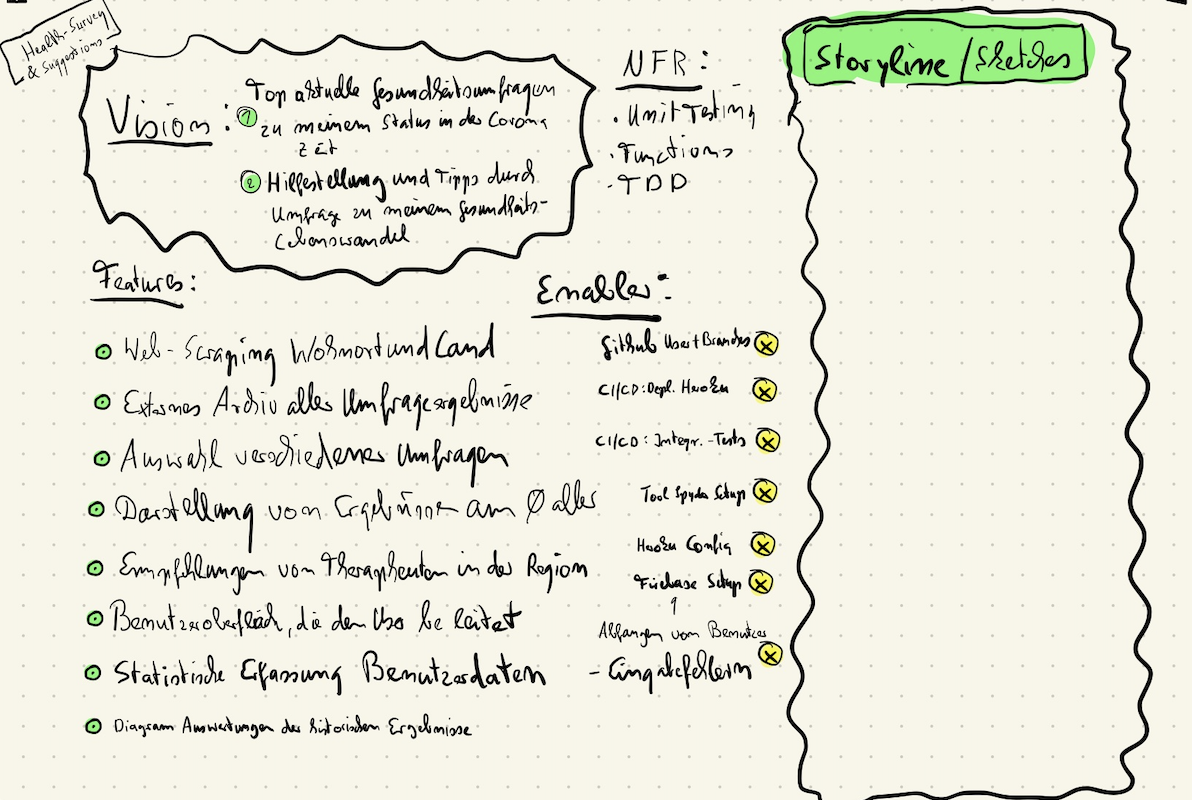 Health-Survey
& Suggestions
Vision:
1 Top aktuelle Gesundheitsumfragen
zu meinem Status in der Corona
Zeit
2 Hilfestellung und Tipps durch
Umfrage zu meinem Gesundheits-
Lebenswandel
NFR:
· Unit Testing
· Functions
· TDD
Storyline / Sketches
Features:
Web-Scraping Wohnort und Land
Externes Archiv aller Umfrageergebnisse
Auswahl verschiedener Umfragen
Darstellung von Ergebnissen am Ø aller
Empfehlungen von Therapheuten in der Region
Benutzeroberfläche, die den User be leitet
Statistische Erfassung Benutzerdaten
Diagram Auswertungen der historischen Ergebnisse
Enabler:
Github User+Branches
CI/CD: Depl. Heroku
CI/CD: Integr.-Tests
Tool Spyder Setup
Heroku Config
Firebase Setup
Abfangen von Benutzer
- Eingabefehlern